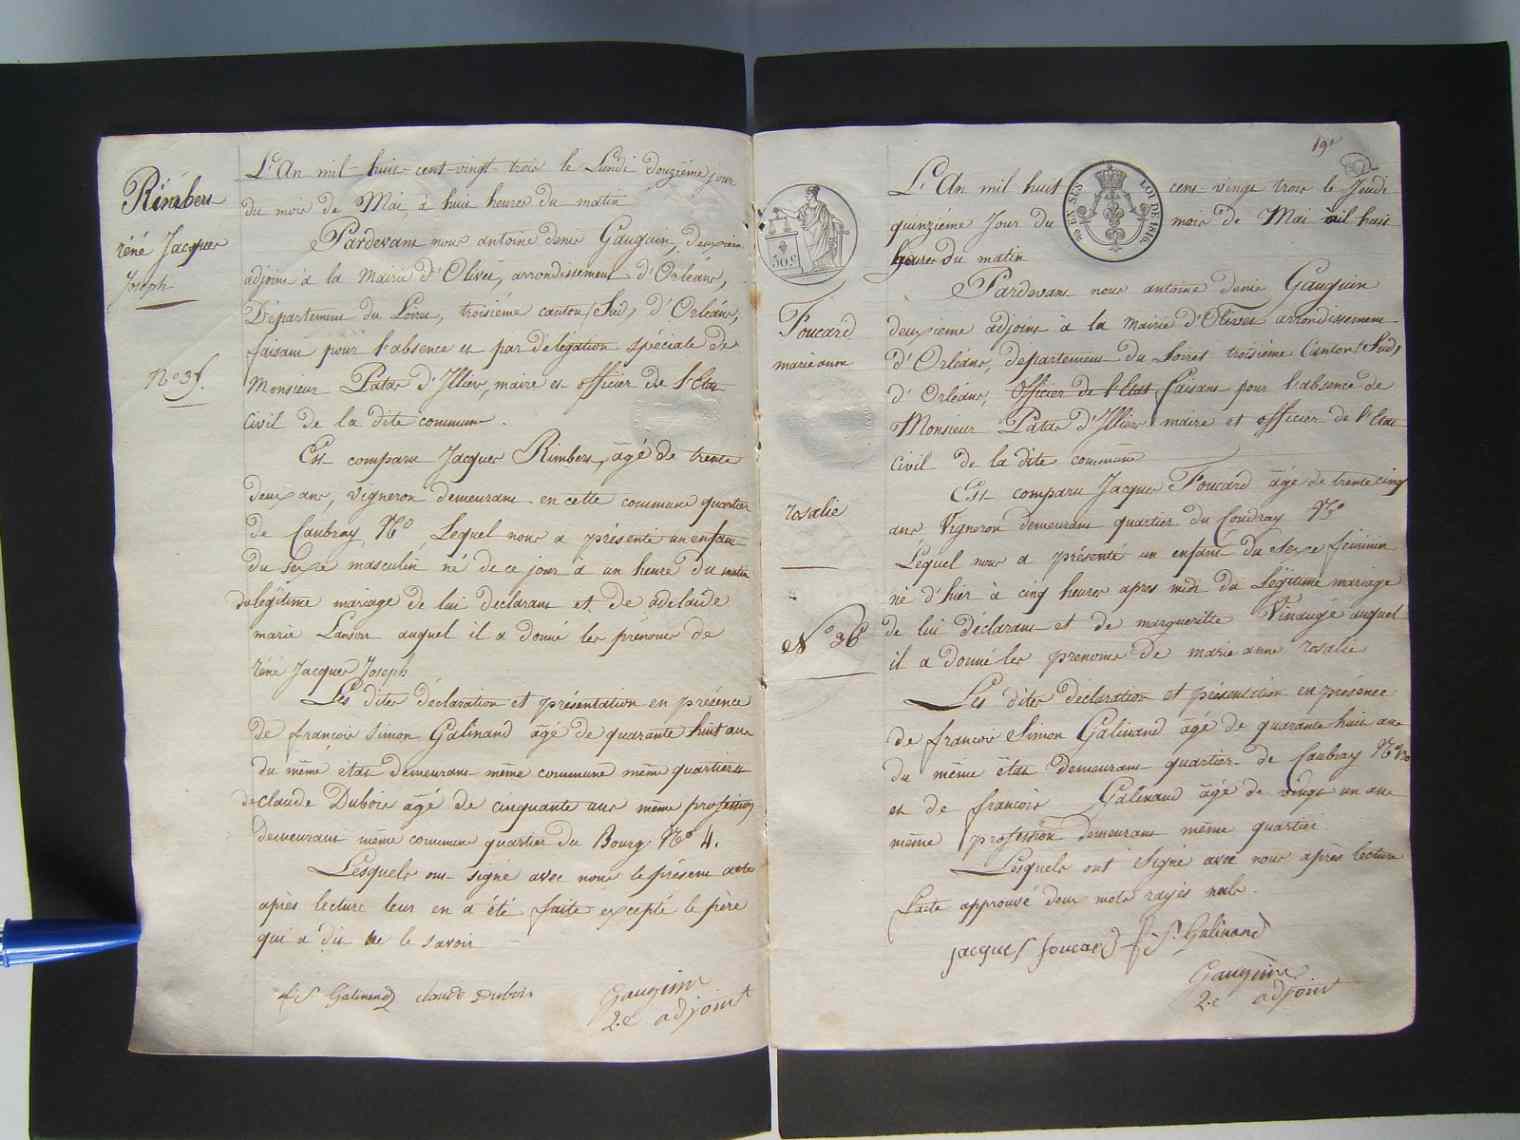 Rimbert
réné Jacques
Joseph
No 35.
L'An mil-huit-cent-vingt-trois le Lundi douzième jour
du mois de Mai, à huit heures du matin
Pardevant nous antoine denis Gauguin, deuxième
adjoint à la Mairie d'Olivet, arrondissement d'Orléans,
Département du Loiret, troisième canton (Sud) d'Orléans,
faisant pour l'absence et par délégation spéciale de
Monsieur Patas d'Illiers, maire et officier de l'Etat
Civil de la dite commune.
Est comparu Jacques Rimbert, âgé de trente
deux ans, vigneron demeurant en cette commune quartier
de Caubray, No Lequel nous a présenté un enfant
du sexe masculin né de ce jour à un heure du matin
du légitime mariage de lui déclarant et de adelaïde
marie Lanson auquel il a donné les prénoms de
réné Jacques Joseph
Les dites déclaration et présentation en présence
de françois simon Galinand âgé de quarante huit ans
du même état demeurant même commune même quartier et
de claude Dubois âgé de cinquante ans même profession
demeurant même commune quartier du Bourg No 4.
Lesquels ont signé avec nous le présent acte
après lecture leur en a été faite excepté le père
qui a dit ne le savoir
f. S. Galinand claude Dubois
Gauguin
2.e adjoint
19e
L'An mil huit cent-vingt trois le Jeudi
quinzième Jour du mois de Mai à huit
heures du matin
50 c
LOI DE 1816
Foucard
marie anne
rosalie
No 36
Pardevant nous antoine denis Gauguin
deuxième adjoint à la mairie d'Olivet arrondissement
d'Orléans, departement du Loiret troisième Canton (Sud)
d'Orléans, officier de l'Etat faisant pour l'absence de
Monsieur Patas d'Illiers maire et officier de l'Etat
Civil de la dite commune
Est comparu Jacques Foucard âgé de trente cinq
ans, Vigneron demeurant quartier du Coudray No
Lequel nous a présenté un enfant du sexe féminin
né d'hier à cinq heures après midi du Légitime mariage
de lui déclarant et de margueritte Vinauge auquel
il a donné les prenoms de marie anne rosalie
Les dites déclaration et présentation en présence
de françois Simon Galinand âgé de quarante huit ans
du même état demeurant quartier de Caubray No
et de françois Galinand âgé de vingt un ans
même profession demeurant même quartier
Lesquels ont signé avec nous après lecture
L'acte approuvé deux mots rayés nuls.
jacques foucard f. S. Galinand
Gauguin
2.e adjoint